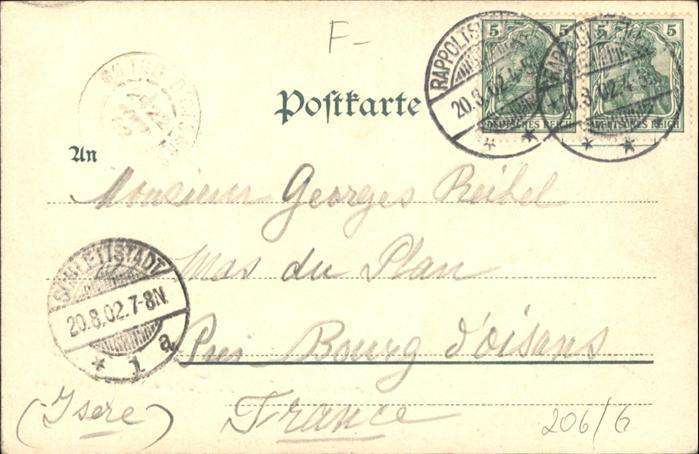 F-
5 5 5 5
RAPPOLTSWEILER
20.8.02.4-5N
DEUTSCHES REICH DEUTSCHES REICH
Postkarte
An
Monsieur Georges Reibel
Mas du Plan
Près Bourg d'oisans
(Isere)
France
SCHLETTSTADT
20.8.02.7-8N.
* 1 a
206/6